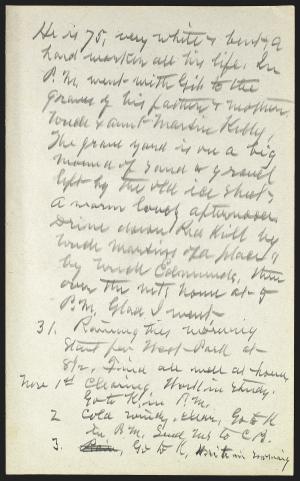 He is 75, very white & bent, a
hard worker all his life. In
P.M. went with Gib to the
graves of his father & mother,
Uncle & aunt Martin Kelly,
The grave yard is on a big
mound of sand & gravel
left by the old ice sheet.
A warm lovely afternoon
Drive down Red Kill by
Uncle Martin's old place &
by Uncle Edmunds, then
over the mt, home at 5
P.M. Glad I went
31. Raining this morning
Start for West Park at
8½, Find all well at home
Nov 1st Clearing, Work in study.
Go to K in P.M.
2 Cold windy, clear, Go to K
In P.M. Send to C.B.
3. Go to K, Write in morning